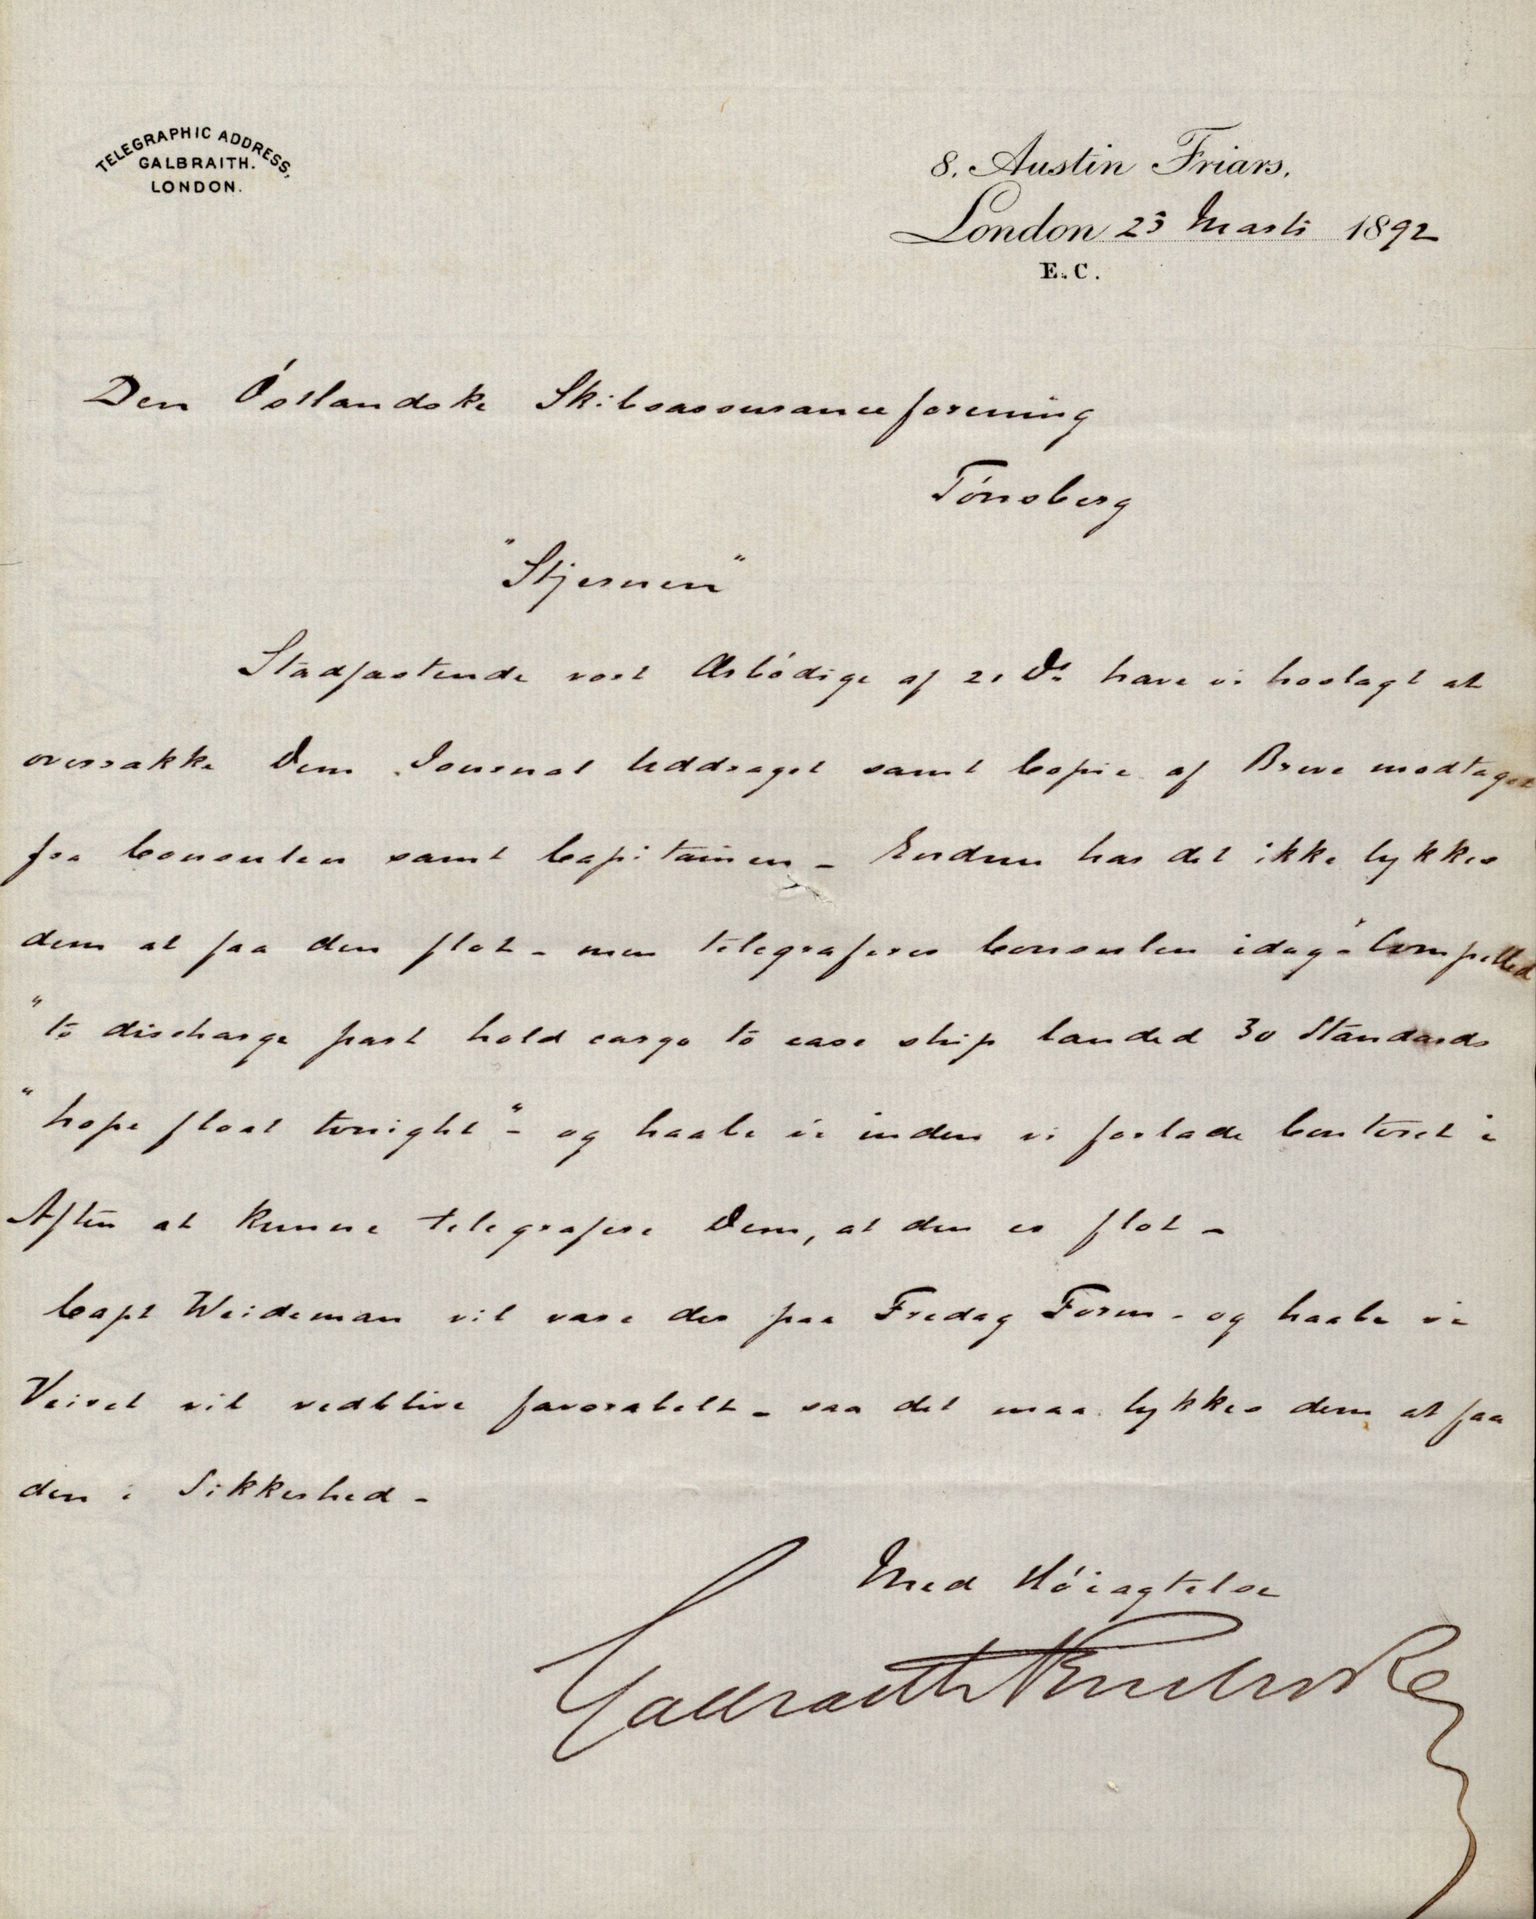 TELEGRAPHIC ADDRESS,
GALBRAITH.
LONDON.
8. Austin Friars.
London 23 Marts 1892
E.C.
Den Östlandske Skibsassuranceforening
Tönsberg
"Stjernen"
Stadfæstende vort Ærbödige af 21 Ds. have vi hoslagt at
overrække Dem Journal Uddraget samt Copie af Breve modtaget
fra Consulen samt Capitainen - Endnu har det ikke lykkes
dem at faa den flot - men telegraferes Consulen idag "Compelled
"to discharge part hold cargo to ease ship landed 30 Standards
"hope float tonight" - og haabe vi inden vi forlade Contoret i
Aften at kunne telegrafere Dem, at den er flot -
Capt Weideman vil være der paa Fredag Form - og haabe vi
Veiret vil vedblive favorabelt - saa det maa lykkes dem at faa
den i Sikkerhed -
Med Höiagtelse
Galbraith